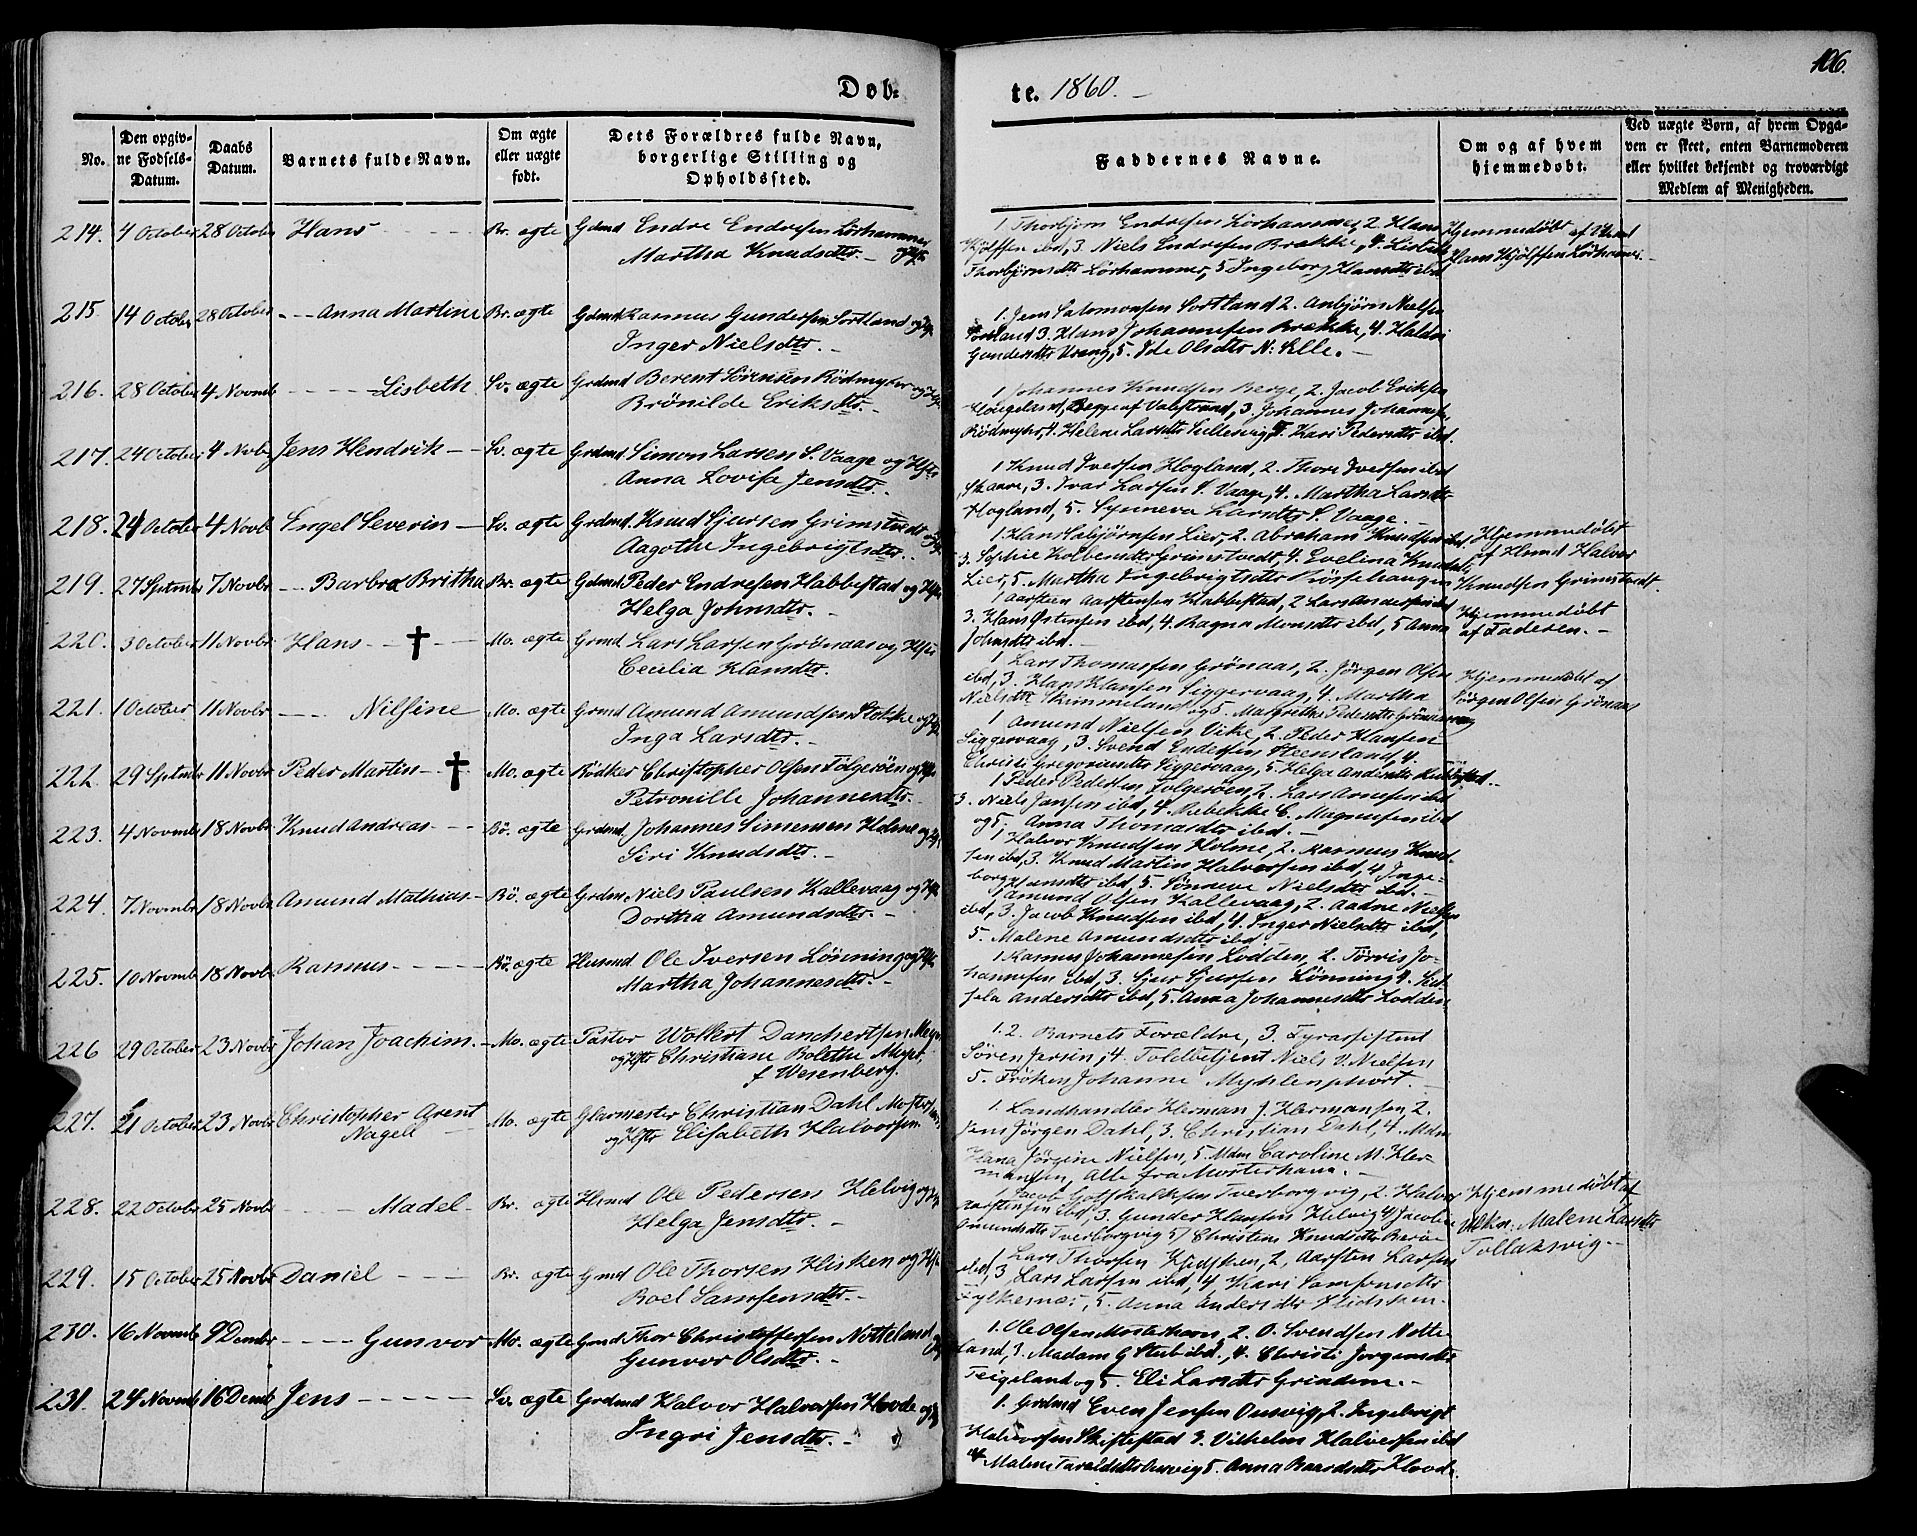 Døb-
te. 1860. -
106.
No.
Den opgiv-
ne Fødsels-
Datum.
Daabs
Datum.
Barnets fulde Navn.
Om ægte
eller uægte
født.
Dets Forældres fulde Navn,
borgerlige Stilling og
Opholdssted.
Faddernes Navne.
Om og af hvem
hjemmedøbt.
Ved uægte Børn, af hvem Opga-
ven er skeet, enten Barnemoderen
eller hvilket bekjendt og troværdigt
Medlem af Menigheden.
214. 4 October 28 October Hans Br. ægte Gdmd Endre Endresen Lørhammer
Martha Knudsdtr. -
1 Thorbjørn Endresen Lørhammer, 2 Hans
ibd, 3 Niels Endresen Brække, 4. Lisbeth
Thorbjørnsdtr Lørhammer, 5 Ingeborg Hansdtr ibd
Hjemmedøbt af
Hans
215. 14 October 28 October - - Anna Martine Br. ægte Gdmd Rasmus Gundersen Sortland og
Inger Nielsdtr. -
1. Jens Salomonsen Sortland 2. Anbjørn Nielsen
Sortland 3. Hans Johannesen Brække, 4.
Gundersdtr Vrang, 5. Ide Olsdtr N: Selle. -
216. 28 October 4 Novmb - - - - Lisbeth Sv. ægte Grdmd Berent Sørensen Rødmyhr og
Brønilde Eriksdtr. -
1 Johannes Knudsen Berge, 2. Jacob Eriksen
Begge af Valestrand, 3. Johannes
Rødmyhr, 4. Helene Larsdtr 5. Kari Pedersdtr ibd.
217. 24 October 4 Novb Jens Hendrik - - Sv. ægte Grdmd Simon Larsen S. Vaage og Hstr
Anna Lovise Jensdtr. -
1 Knud Iversen Hogland, 2. Thore Iversen ibd
Skaare, 3. Ivar Larsen S. Vaage, 4. Martha Larsdtr
Hogland, 5. Synneva Larsdtr S. Vaage. -
218. 24 October 4 Novb Engel Severin - Sv. ægte Grdmd. Knud Sjursen Grimstvedt
Aagothe Ingebrigtsdtr.
1. Hans Lier, 2. Abraham Knudsen ibd.
3. Sophie Grimstvedt, 4. Evelina
Lier, 5. Martha Ingebrigtsdtr
Hjemmedøbt
af Halvor
Knudsen Grimstvedt.
219. 27 Septmbr 7 Novbr - - Barbra Britha Br. ægte Gdmd Peder Endresen Habbestad og
Helga Johnsdtr. -
1 Aarsten Aarstensen Habbestad, 2 Lars Andersen ibd
3. Hans Østensen ibd, 4. Ragna Monsdtr ibd, 5 Anna
Johnsdtr ibd. -
Hjemmedøbt
af Faderen. -
220. 3 October 11 Novbr Hans - - † - - Mo. ægte Grmd Lars Larsen Grønaas og Hstr
Cecilia Hansdtr.
1 Lars Thomassen Grønaas, 2. Jørgen Olsen
ibd, 3. Hans Hansen Siggervaag, 4. Martha
Nielsdtr Skimmeland og 5. Margrethe Pedersdtr
Hjemmedøbt af
Jørgen Olsen Grønaas
221. 1 October 11 Novbr - - - Nilsine Mo. ægte Grmd Amund Amundsen Stokke og
Inga Larsdtr. -
1 Amund Nielsen Vike, 2. Peder Hansen
Siggervaag, 3. Svend Endresen Steensland, 4.
Christi Gregoriusdtr Siggervaag, 5. Helga Andersdtr
222. 29 Septmbr 11 Novbr Peder Martin - - † Mo. ægte Bødker Christopher Olsen Folgerøen og
Petronille Johannesdtr.
1 Peder Pedersen Folgerøen, 2. Lars Arnesen ibd
3. Niels Jansen ibd, 4. Rebekke C. Magnusen ibd
og 5. Anna Thomasdtr ibd. -
223. 4 Novmb 18 Novbr Knud Andreas - - - Bø. ægte Grdmd. Johannes Simensen Holme og
Siri Knudsdtr. -
1 Halvor Knudsen Holme, 2. Rasmus Knud-
sen ibd, 3. Knud Martin Halvorsen ibd, 4 Inge-
borg Hansdtr ibd, 5. Sønneve Nielsdtr ibd. -
224. 7 Novmbr 18 Novbr Amund Mathias - Bø. ægte Grdmd Niels Paulsen Kallevaag og
Dortha Amundsdtr. -
1 Amund Olsen Kallevaag, 2. Aadne Nielsen
ibd, 3. Jacob Knudsen ibd, 4. Inger Nielsdtr ibd,
5. Malene Amundsdtr ibd
225. 10 Novmb 18 Novbr Rasmus - - - - - Bø. ægte Husmd Ole Iversen Lønning og
Martha Johannesdtr. -
1 Rasmus Johannesen Lodden, 2. Tørris Jo-
hannesen ibd, 3. Sjur Sjursen Lønning 4. Sit-
sela Andersdtr ibd, 5. Anna Johannesdtr Lodden
226 29 October 23 Novbr Johan Joachim. - Mo. ægte Pastor Wolkert Danchertsen
og Hstr Christiane Bolethe
f Wesenberg.
1. 2. Barnets Forældre, 3. Fyrassistent
Søren Jersin, 4. Toldbetjent Niels V. Nielsen
5. Frøken Johanne -
227. 21 October 23 Novbr Christopher Arent
Nagell -
Mo. ægte Glarmester Christian Dahl
og Hstr Elisabeth Halvorsen
1. Landhandler Herman J. Hermansen, 2.
Jens Jørgen Dahl, 3. Christian Dahl, 4. Mdm
Hana Jørgine Nielsen, 5. Mdm Caroline M. Her-
mansen, Alle fra Mosterhavn. -
228. 22 October 25 Novbr - - - Madel - Br. ægte Husmd Ole Pedersen Helvig og
Helga Jensdtr. -
1 Jacob Gotskalksen Tverborgvig, 2. Halvor
Aarstensen ibd, 3. Gunder Hansen Helvig 4/ Jacobine
Amundsdtr Tverborgvig 5/ Christine Knudsdtr
Hjemmedøbt af
Malene Larsdtr
Tollaksvig. -
229. 15 October 25 Novbr Daniel - - - Br. ægte Gmd Ole Thorsen Hisken og
Roel Samsonsdtr. -
1 Lars Thorsen 2, Aarsten Larsen
ibd, 3 Lars Larsen ibd, 4 Kari Samsonsdtr
Fylkesnæs, 5. Anna Andersdtr
230. 16 Novmb 9 Dembr - - - - Gunvor - Mo. ægte Gmd Thor Christoffersen Notteland
Gunvor Olsdtr. -
1. Ole Olsen Mosterhavn, 2. O. Svendsen Notte-
land, 3. Madam G Stub ibd., 4. Christi Jørgensdtr
Teigeland og 5. Eli Larsdtr Grindem. -
231. 24 Novmb 16 Demb Jens - - - - - Sv. ægte Grdmd Halvor Halvorsen Hovde og
Ingri Jensdtr. -
1. Grdmd Even Jensen Ousvig, 2. Ingebrigt
Halvorsen 3. Vilhelm Halversen ibd
4 Malene Taraldsdtr Ousvig 5. Anna Baardsdtr Hovde.